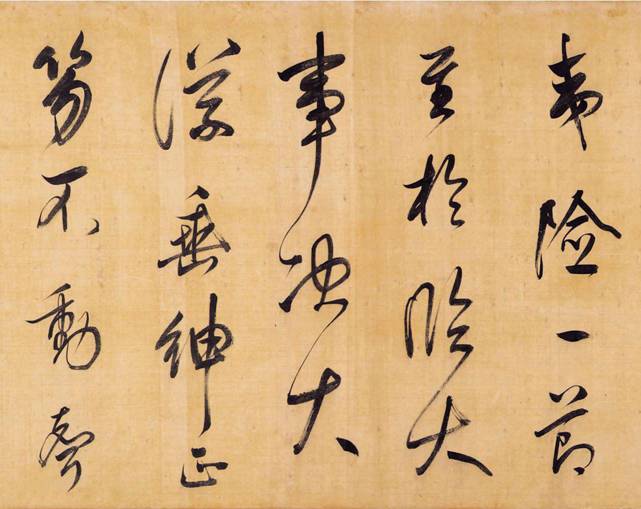 夷險一節
至於臨大
事決大
議垂紳正
笏不動聲